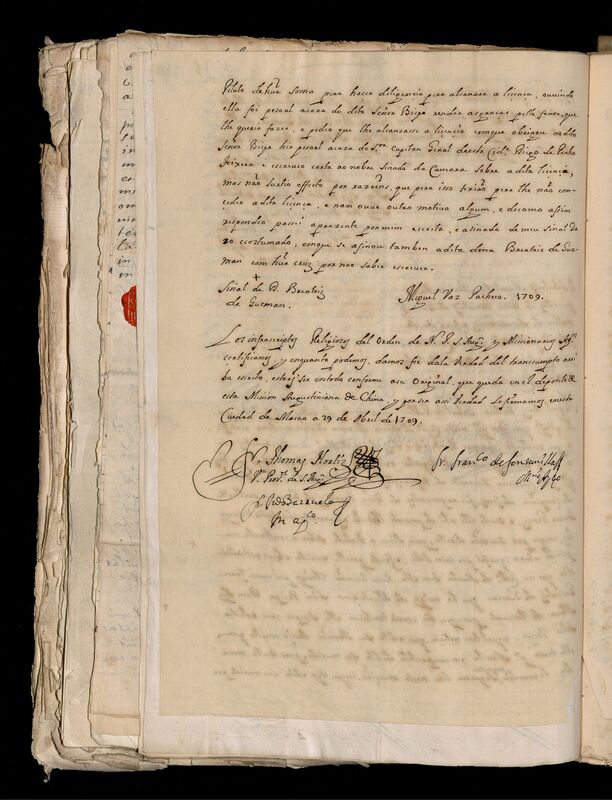 Piloto de hũa soma pera hacer diligencia pera alcanzar a licença, ouvindo
ella foi pesoal acaza do dito Señor Bispo render as graças pello favor, que
lhe queria fazer, e pedio que lhe alcanzasse a licencia comque obrigou ao dito
Señor Bispo hir pesoal acaza do S.or Capitan Geral desta Cid.e Diogo de Pinho
Teixeira e escrevio carta ao nobre Sinado da Camara sobre a dita licencia,
mas não surtio effeito por razoens, que pera isso terião pera lhe não con-
ceder a dita licença, e nam ouve outro motivo algum, e decomo assim
respondeo passei a prezente por mim escrita, e asinada de meu sinal
ecostumado, emque se asinou tambem a dita dona Breatriz de Guz-
man com hũa cruz por nao saber escrever.
+
Señal de D. Breatriz
de Gusman.
Miguel Vaz Pacheco. 1709.
Los infrascriptos Religiosos del Orden de N. P. S. Aug.n y Missionarios App.cos
certifiamos y en quanto podemos damos fee dela Verdad del transumpto arri
ba escrito, estes ser en todo conforme a su Original, que queda en el deposito de
esta Mission Augustiniana de China, y por ser assi Verdad lo firmamos en esta
Ciudad de Macao a 29 de Abril de 1709.
Fr. Thomas Hortiz
V.o Prov.l de S. Aug.n
fr. Fran.co de Fonseu
Fr. Barruelo
M ap.co